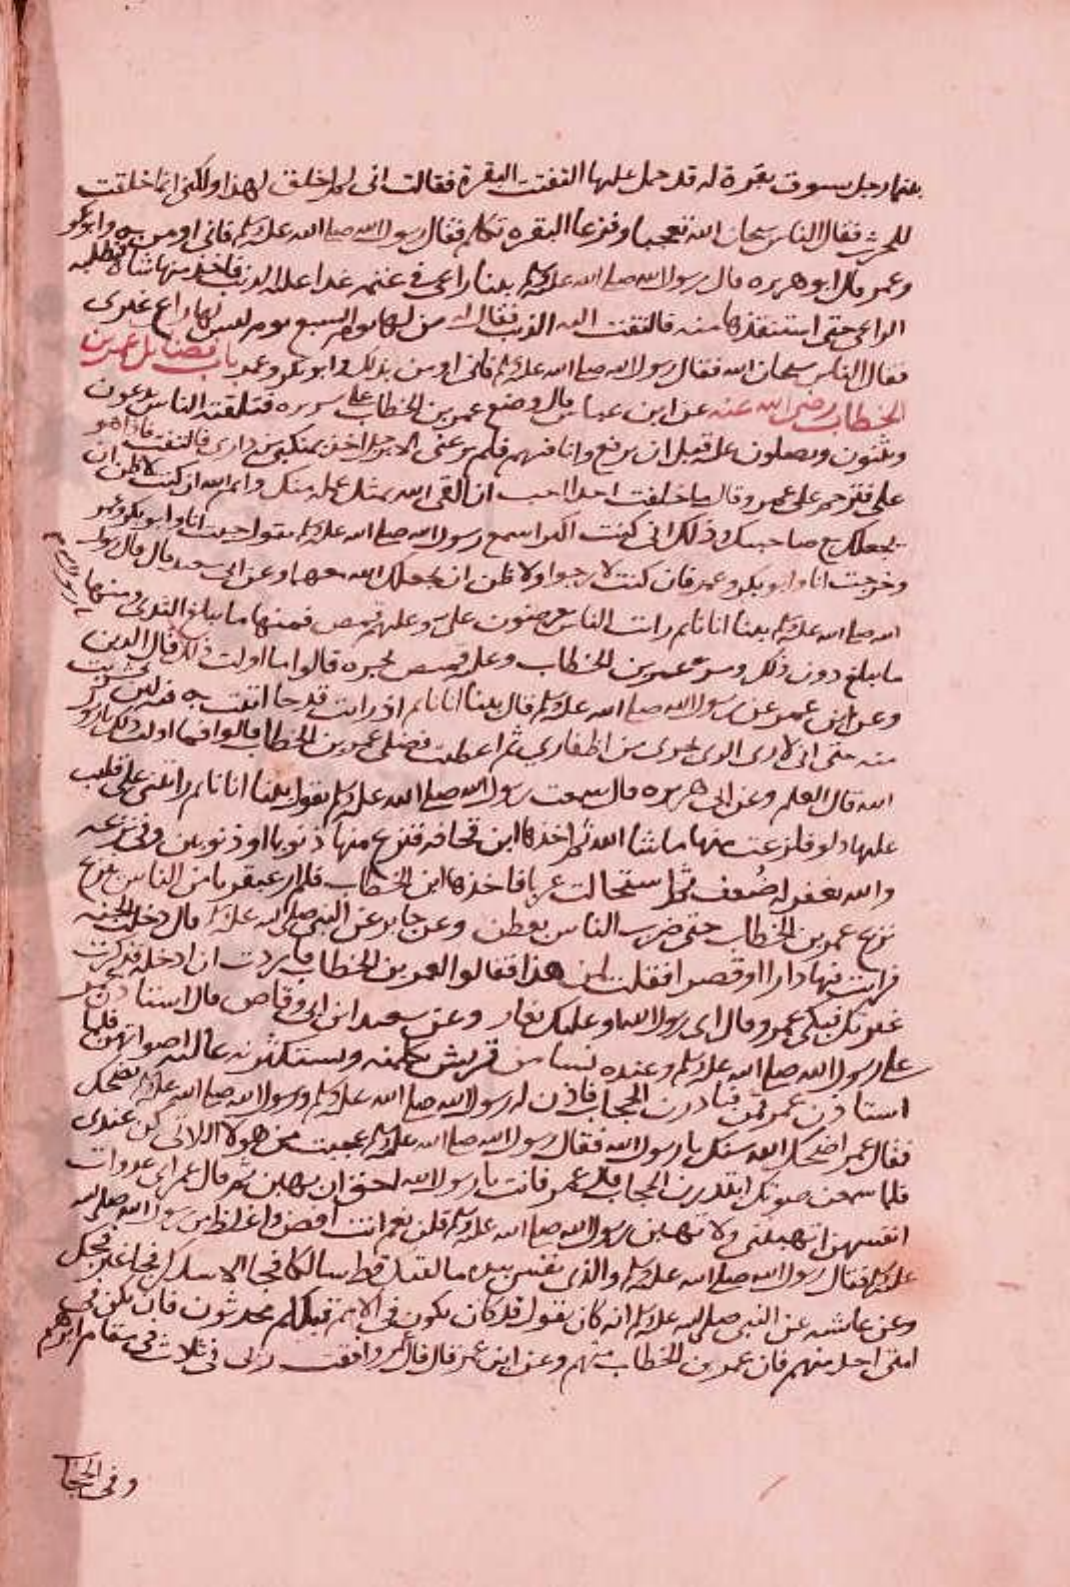 بينما رجل يسوق بقرة له قد حمل عليها التفتت البقرة فقالت انى لم اخلق لهذا ولكنى انما خلقت
للحرث فقال الناس سبحان الله تعجبا وفزعا البقره تكلم فقال رسول الله صلى الله عليه وسلم فانى اومن به وابو بكر
وعمر قال ابو هريره قال رسول الله صلى الله عليه وسلم بينا راعى فى غنمه عدا عليه الذئب فاخذ منها شاة فطلبه
الراعى حتى استنقذها منه فالتفت اليه الذئب فقال له من لها يوم السبع يوم ليس لها راع غيرى
فقال الناس سبحان الله فقال رسول الله صلى الله عليه وسلم فانى اومن بذلك وابو بكر وعمر باب فضائل عمر بن
الخطاب رضى الله عنه عن ابن عباس قال وضع عمر بن الخطاب على سريره فتلقته الناس يدعون
ويثنون ويصلون عليه قبل ان يرفع وانا فيهم فلم يرعنى الا برجل اخذ بمنكبى من وراى فالتفت فاذا هو
على فترحم على عمر وقال ما خلفت احدا احب ان القى الله بمثل عمله منك وايم الله ان كنت لاظن ان
يجعلك مع صاحبيك وذلك انى كنت اكثر اسمع رسول الله صلى الله عليه وسلم يقول جيت انا وابو بكر وعمر
وخرجت انا وابو بكر وعمر فان كنت لارجوا ولاظن ان يجعلك الله معهما وعن ابى سعيد قال قال رسول
الله صلى الله عليه وسلم بينا انا نائم رايت الناس يعرضون على وعليهم قمص فمنها ما يبلغ الثدى ومنها
ما يبلغ دون ذلك ومر عمر بن الخطاب وعليه قميص يجره قالوا ما اولت ذلك قال الدين
وعن ابن عمر عن رسول الله صلى الله عليه وسلم قال بينا انا نائم اذ رايت قدحا اتيت به فيه لبن فشربت
منه حتى انى لارى الرى يجرى من اظفارى ثم اعطيت فضلى عمر بن الخطاب قالوا فما اولت ذلك يا رسول
الله قال العلم وعن ابى هريره قال سمعت رسول الله صلى الله عليه وسلم يقول بينا انا نائم رايتنى على قليب
عليها دلو فنزعت منها ما شا الله ثم اخذها ابن ابى قحافه فنزع منها ذنوبا او ذنوبين وفى نزعه
والله يغفر له ضُعف ثم استحالت غربا فاخذها ابن الخطاب فلم ار عبقريا من الناس ينزع
نزع عمر بن الخطاب حتى ضرب الناس بعطن وعن جابر عن النبى صلى الله عليه وسلم قال دخلت الجنه
فرايت فيها دارا او قصرا فقلت لمن هذا فقالوا لعمر بن الخطاب فاردت ان ادخله فذكرت
غيرتك فبكى عمر وقال اى رسول الله او عليك يغار وعن سعد ابن ابى وقاص قال استاذن عمر
على رسول الله صلى الله عليه وسلم وعنده نسا من قريش يكلمنه ويستكثرنه عاليه اصواتهن فلما
استاذن عمر قمن يبتدرن الحجاب فاذن له رسول الله صلى الله عليه وسلم ورسول الله صلى الله عليه وسلم يضحك
فقال عمر اضحك الله سنك يا رسول الله فقال رسول الله صلى الله عليه وسلم عجبت من هولا اللاتى كن عندى
فلما سمعن صوتك ابتدرن الحجاب قال عمر فانت يا رسول الله احق ان يهبن ثم قال عمر اى عدوات
انفسهن اتهبننى ولا تهبن رسول الله صلى الله عليه وسلم قلن نعم انت افض واغلظ من رسول الله صلى الله
عليه وسلم فقال رسول الله صلى الله عليه وسلم والذى نفسى بيده ما لقيك قط سالكا فجا الا سلك فجا غير فجك
وعن عائشه عن النبى صلى الله عليه وسلم انه كان يقول قد كان يكون فى الامم قبلكم محدثون فان يكن فى
امتى احد منهم فان عمر بن الخطاب منهم وعن ابن عمر قال قال عمر وافقت ربى فى ثلاث فى مقام ابرهيم
وفى الحجا